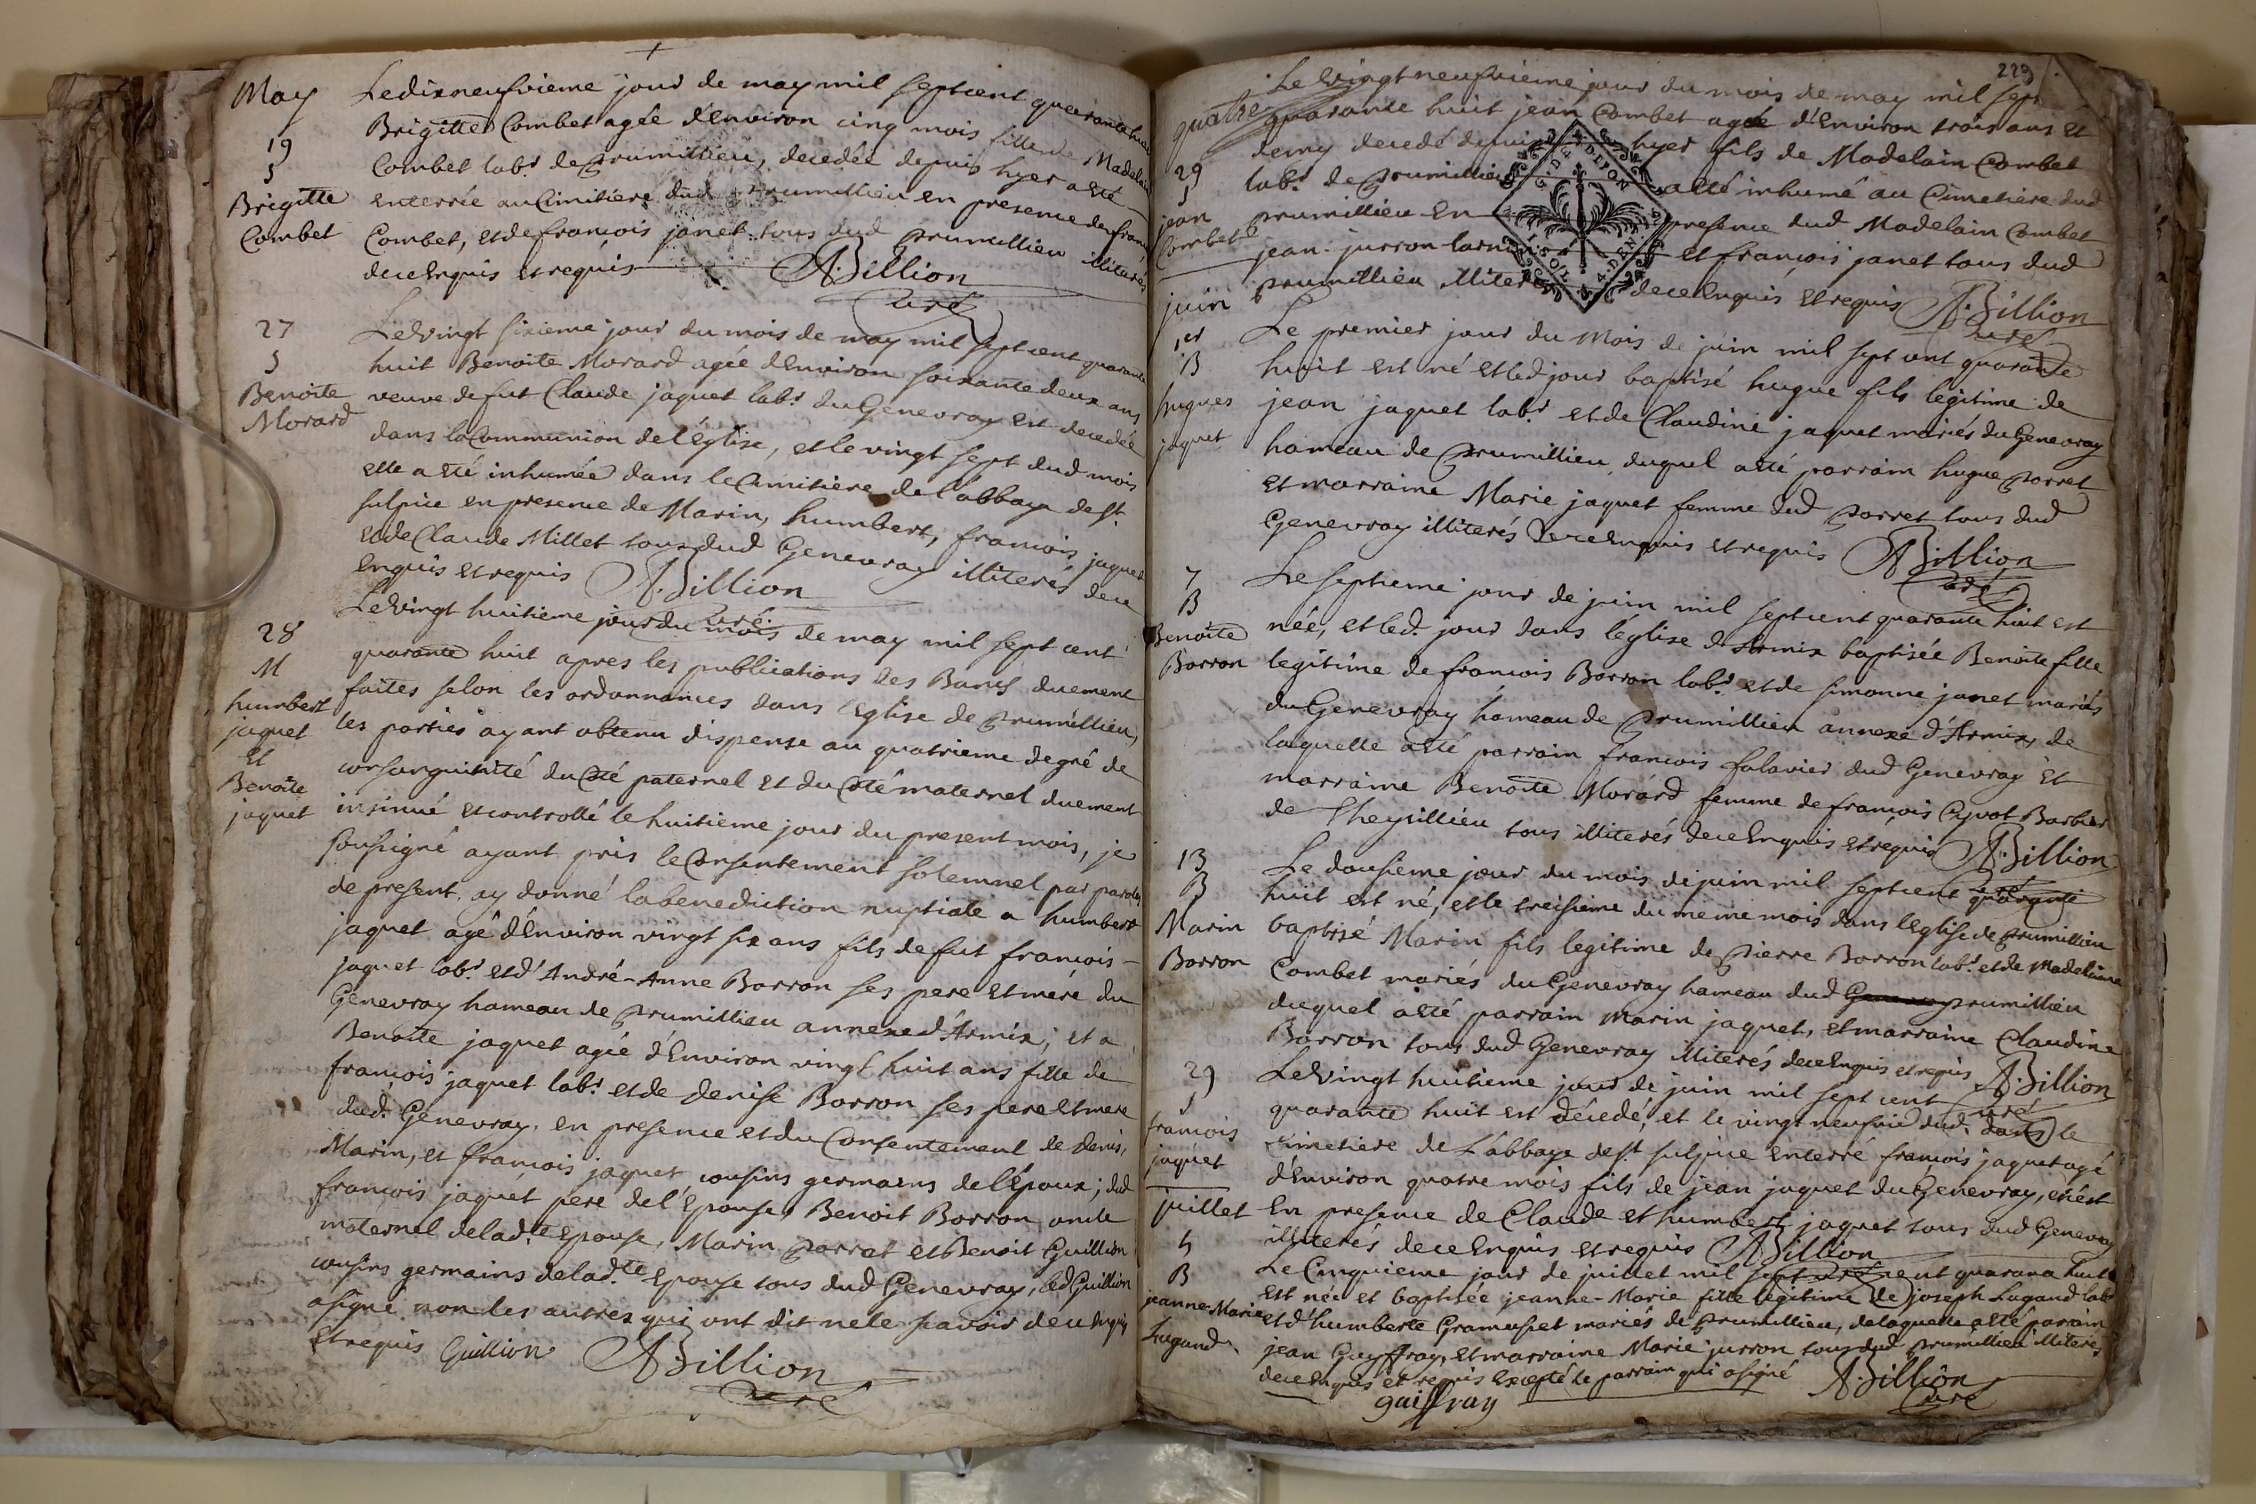 May
19
S
Brigitte
Combet
Le dixneufvieme jour de may mil septcent quarantehuit
Brigitte Combet agée d'Environ cinq mois fille de Madelain
Combet labr. de prumillieu, decedée depuis hyer a été
enterrée au Cimitiere dud prumillieu en presence de franc
Combet, et de francois janet tous dud prumillieu illiterés
de ce Enquis et requis A. Billion
curé
27
S
Benoite
Morard
Le vingt sixieme jour du mois de may mil septcent quarante
huit Benoite Morard agée d'Environ soixante deux ans
veuve de fut Claude jaquet labr. du Genevray est decedée
dans la Communion de l'église, et le vingt sept dud mois
elle a été inhumée dans le Cimitiere de l'abbaye de st.
sulpice en presence de Marin, humbert, francois jaquet
et de Claude Millet tous dud Genevray illiterés de ce
Enquis et requis A. Billion
curé
28
M
humbert
jaquet
et
Benoite
jaquet
Le vingt huitieme jour du mois de may mil sept cent
quarante huit apres les publications des Bancs duement
faites selon les ordonnances dans l'Eglise de prumillieu,
les parties ayant obtenu dispense au quatrieme degré de
consanguinité du Coté paternel et du Coté maternel duement
insinué et controllé le huitieme jour du present mois, je
soussigné ayant pris le Consentement solemnel par paroles
de present, ay donné la benediction nuptiale a humbert
jaquet agé d'Environ vingt six ans fils de fut francois
jaquet labr. et d'André-Anne Borron ses pere et mere du
Genevray hameau de prumillieu annexe d'Armix; et a
Benoite jaquet agée d'Environ vingt huit ans fille de
francois jaquet labr. et de denise Borron ses pere et mere
dud. Genevray, en presence et du Consentement de denis,
Marin, et francois jaquet cousins germains de l'Epoux; dud
francois jaquet pere de l'Epouse, Benoit Borron oncle
maternel de lad.te Epouse, Marin porret et Benoit Guillion
cousins germains de lad.te Epouse tous dud Genevray, led Guillion
a signé non les autres qui ont dit ne le savoir de ce Enquis
et requis Guillion A. Billion
curé
229
quatre
29
S
jean
Combet
Le Vingt neufvieme jour du mois de may mil sept
quarante huit jean Combet agée d'Environ trois ans et
demy decedé depuis hyer fils de Madelain Combet
labr. de prumillieu a été inhumé au Cimetiere dud
prumillieu en presence dud Madelain Combet
jean jurron et francois janet tous dud
prumillieu illiterés de ce Enquis et requis A. Billion
curé
G. DE DIJON
1. SOL 4. DEN
juin
1er
B
hugues
jaquet
Le premier jour du Mois de juin mil sept cent quarante
huit est né et led jour baptisé hugue fils legitime de
jean jaquet labr. et de Claudine jaquet mariés du Genevray
hameau de prumillieu, duquel a été parrain hugue porret
et marraine Marie jaquet femme dud porret tous dud
Genevray illiterés de ce Enquis et requis A. Billion
curé
7
B
Benoite
Borron
Le septieme jour de juin mil septcent quarante huit est
née, et led. jour dans l'église d'Armix baptisée Benoite fille
legitime de francois Borron labr. et de simonne janet mariés
du Genevray hameau de prumillieu annexe d'Armix, de
laquelle a été parrain francois falavier dud Genevray et
marraine Benoite Morard femme de francois Cyvot Barbier
de Theysillieu tous illiterés de ce Enquis et requis A. Billion
curé
13
B
Marin
Borron
Le dousieme jour du mois de juin mil septcent quarante
huit est né, et le treisieme du meme mois dans l'Eglise de prumillieu
baptisé Marin fils legitime de pierre Borron labr. et de Madelaine
Combet mariés du Genevray hameau dud prumillieu
duquel a été parrain Marin jaquet, et marraine Claudine
Borron tous dud Genevray illiterés de ce Enquis et requis A. Billion
curé
29
S
francois
jaquet
Le Vingt huitieme jour de juin mil sept cent
quarante huit est décedé, et le vingt neufvie dud. dans le
cimetiere de L'abbaye de st. sulpice enterré francois jaquet agé
d'Environ quatre mois fils de jean jaquet du Genevray, et c'est
En presence de Claude et humbert jaquet tous dud Genevray
illiterés de ce Enquis et requis A. Billion
curé
juillet
5
B
jeanne-Marie
Lugand
Le Cinquieme jour de juillet mil sept cent quarante huit
est née et baptisée jeanne-Marie fille legitime de joseph Lugand labr
et d'humberte Gramusset mariés de prumillieu, de laquelle a été parrain
jean Guyffray, et marraine Marie jurron tous dud prumillieu illiterés
de ce Enquis et requis Excepté le parrain qui a signé A. Billion
curé
guiffray